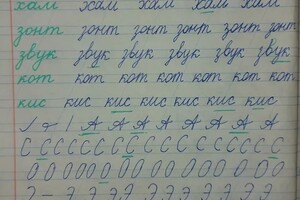 хам хам хам хам хам
зонт зонт зонт зонт зонт
звук звук звук звук звук звук
кот кот кот кот кот кот кот
кис кис кис кис кис кис кис
А А А А А А А
С С С С С С С С С С С С С С
О О О О О О О О О О О О О О О
Э Э Э Э Э Э Э Э